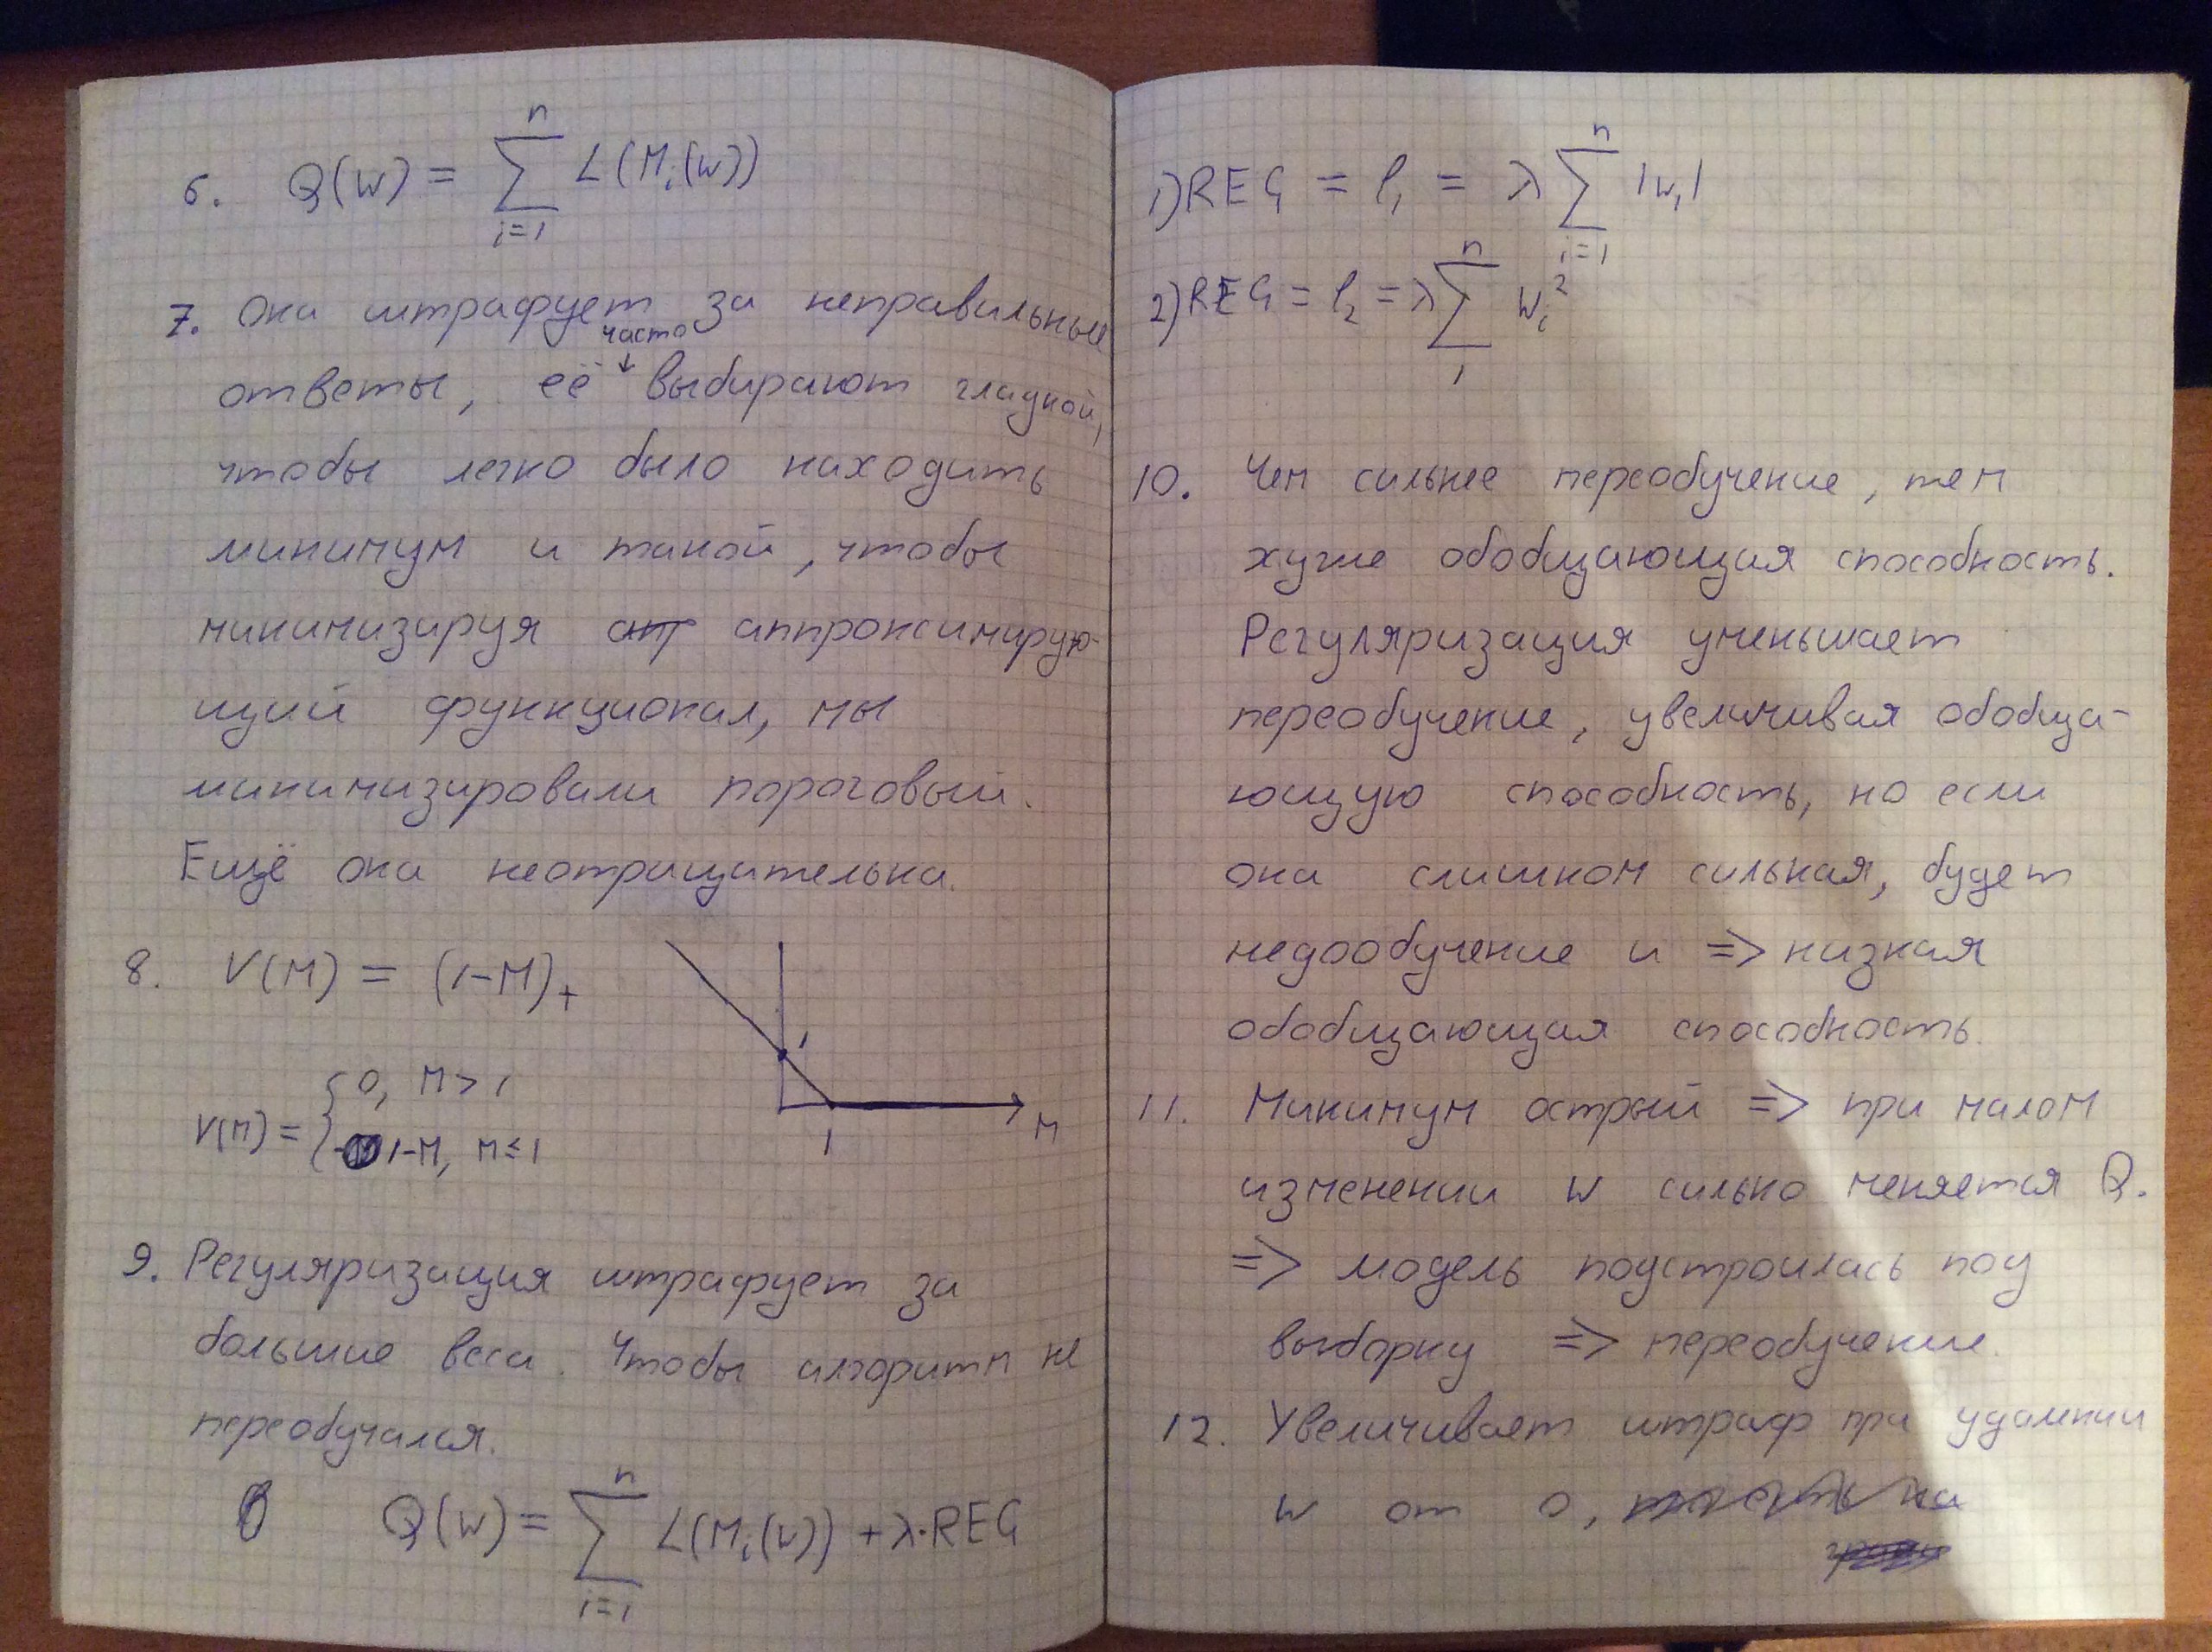 6. Q(w) = n ∑ i=1 L(Mᵢ(w))
7. Она штрафует за неправильные
часто
ответы, её ↓ выбирают гладкой,
чтобы легко было находить
минимум и такой, чтобы
минимизируя апп аппроксимирую-
щий функционал, мы
минимизировали пороговый.
Ещё она неотрицательна.
8. V(M) = (1-M)₊
1
V(M) = { 0, M > 1
1-M, M ≤ 1
1 M
9. Регуляризация штрафует за
большие веса. Чтобы алгоритм не
переобучался.
Q(w) = n ∑ i=1 L(Mᵢ(w)) + λ·REG
1) REG = l₁ = λ n ∑ i=1 |wᵢ|
2) REG = l₂ = λ n ∑ 1 wᵢ²
10. Чем сильнее переобучение, тем
хуже обобщающая способность.
Регуляризация уменьшает
переобучение, увеличивая обобща-
ющую способность, но если
она слишком сильная, будет
недообучение и => низкая
обобщающая способность.
11. Минимум острый => при малом
изменении w сильно меняется Q.
=> модель подстроилась под
выборку => переобучение.
12. Увеличивает штраф при удалении
w от 0,